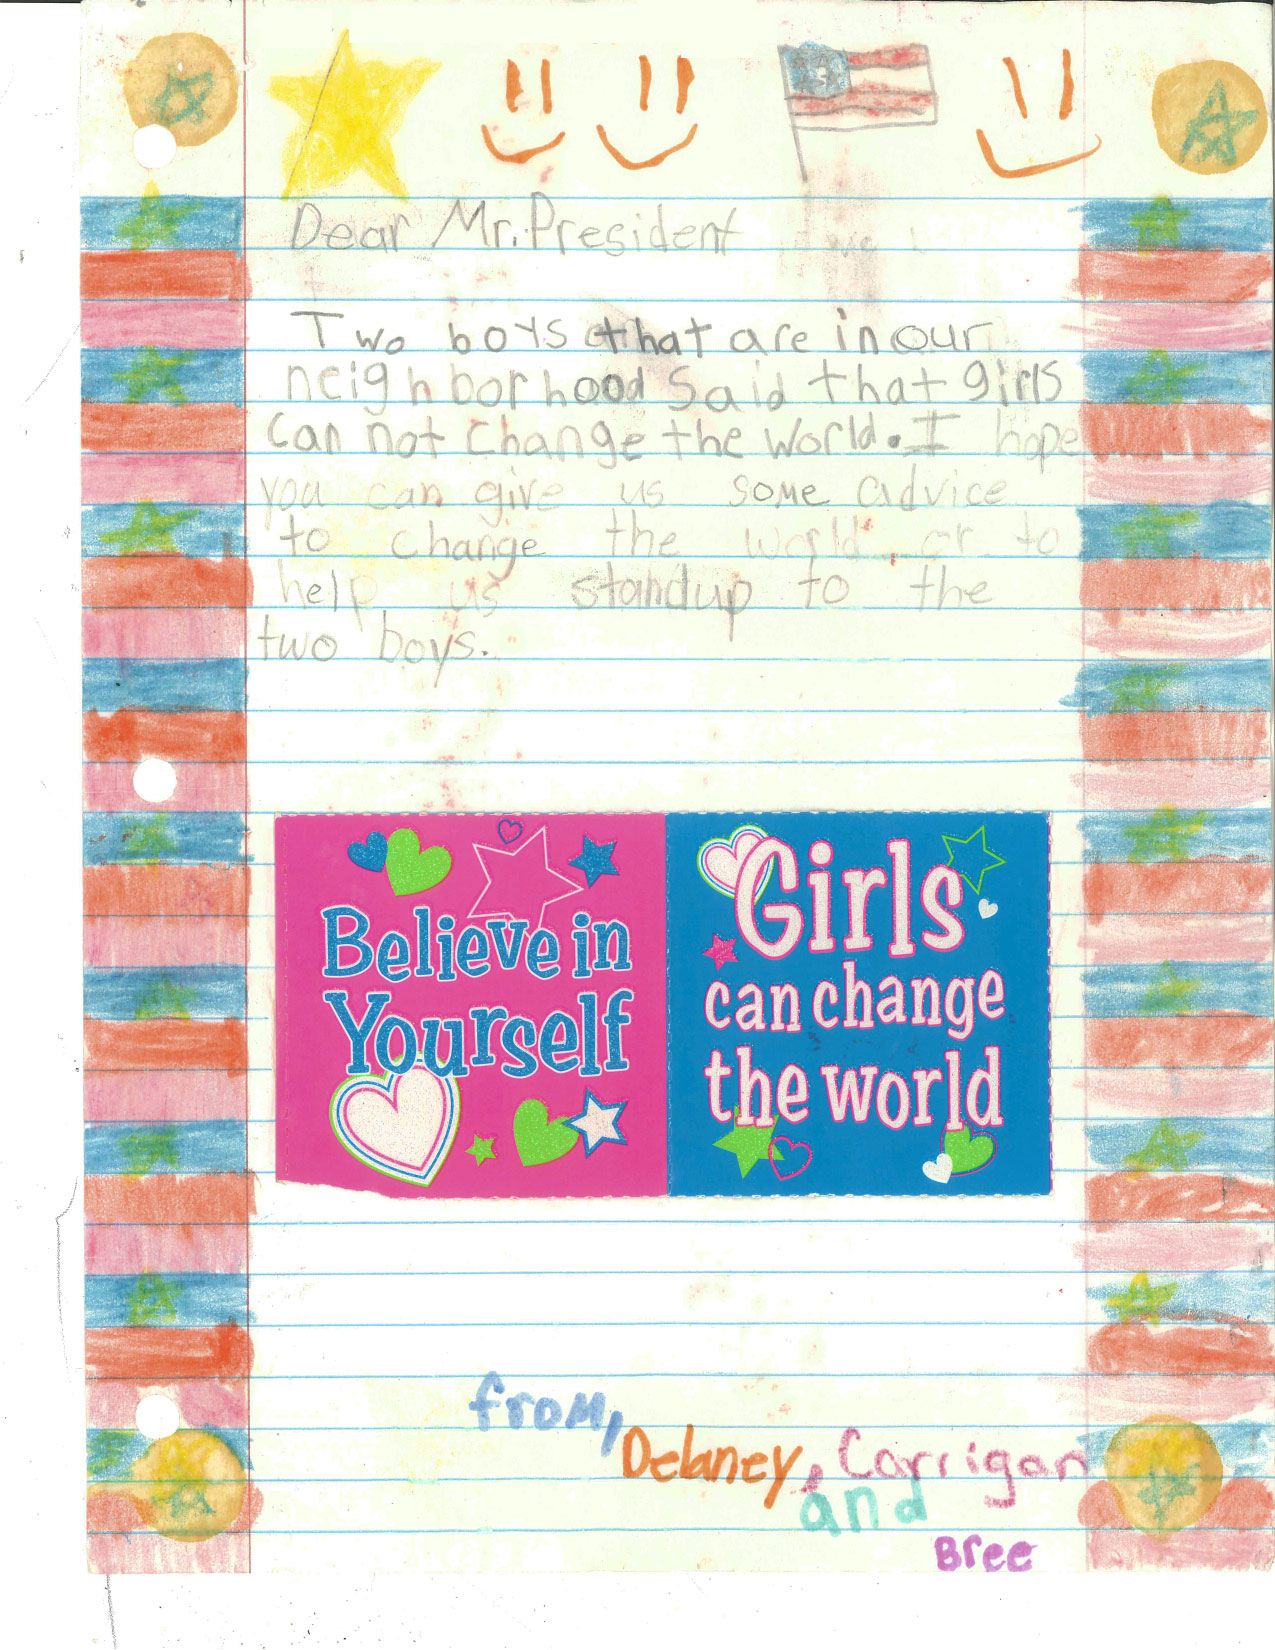 Dear Mr. President
Two boys that are in our
neighborhood said that girls
can not change the world. I hope
you can give us some advice
to change the world or to
help us standup to the
two boys.
Believe in
Yourself
Girls
can change
the world
from,
Delaney, Corrigan
and
Bree